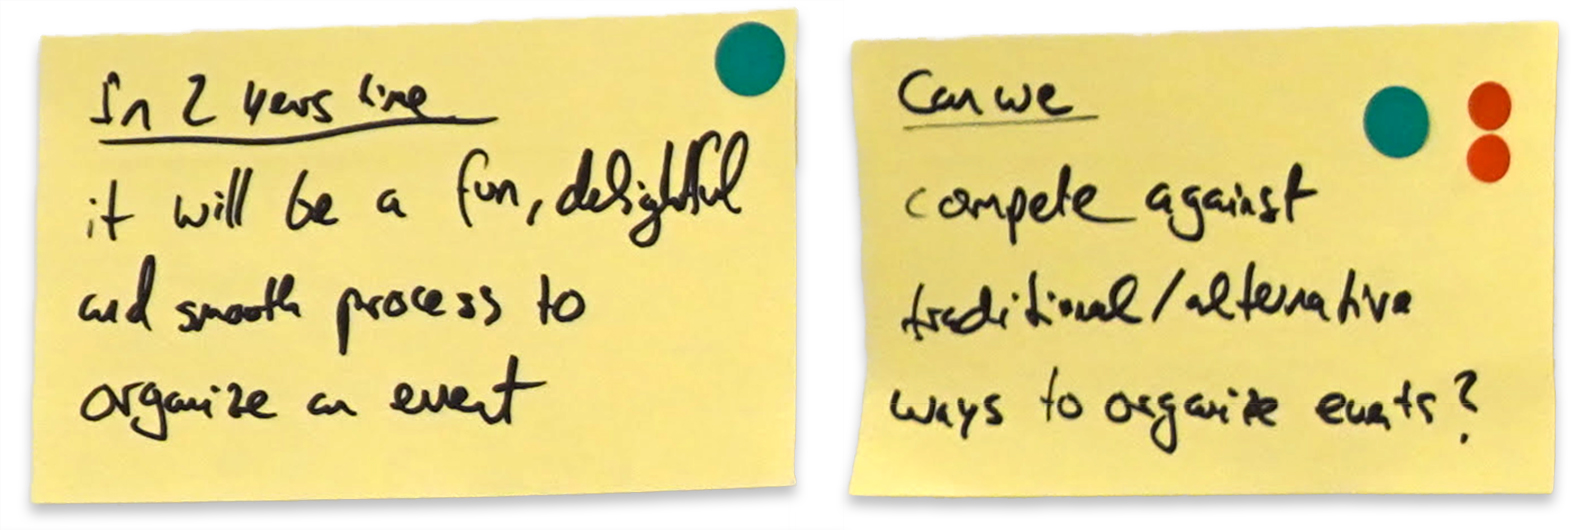 In 2 years time
it will be a fun, delightful
and smooth process to
organize an event
Can we
compete against
traditional/alternative
ways to organize events?